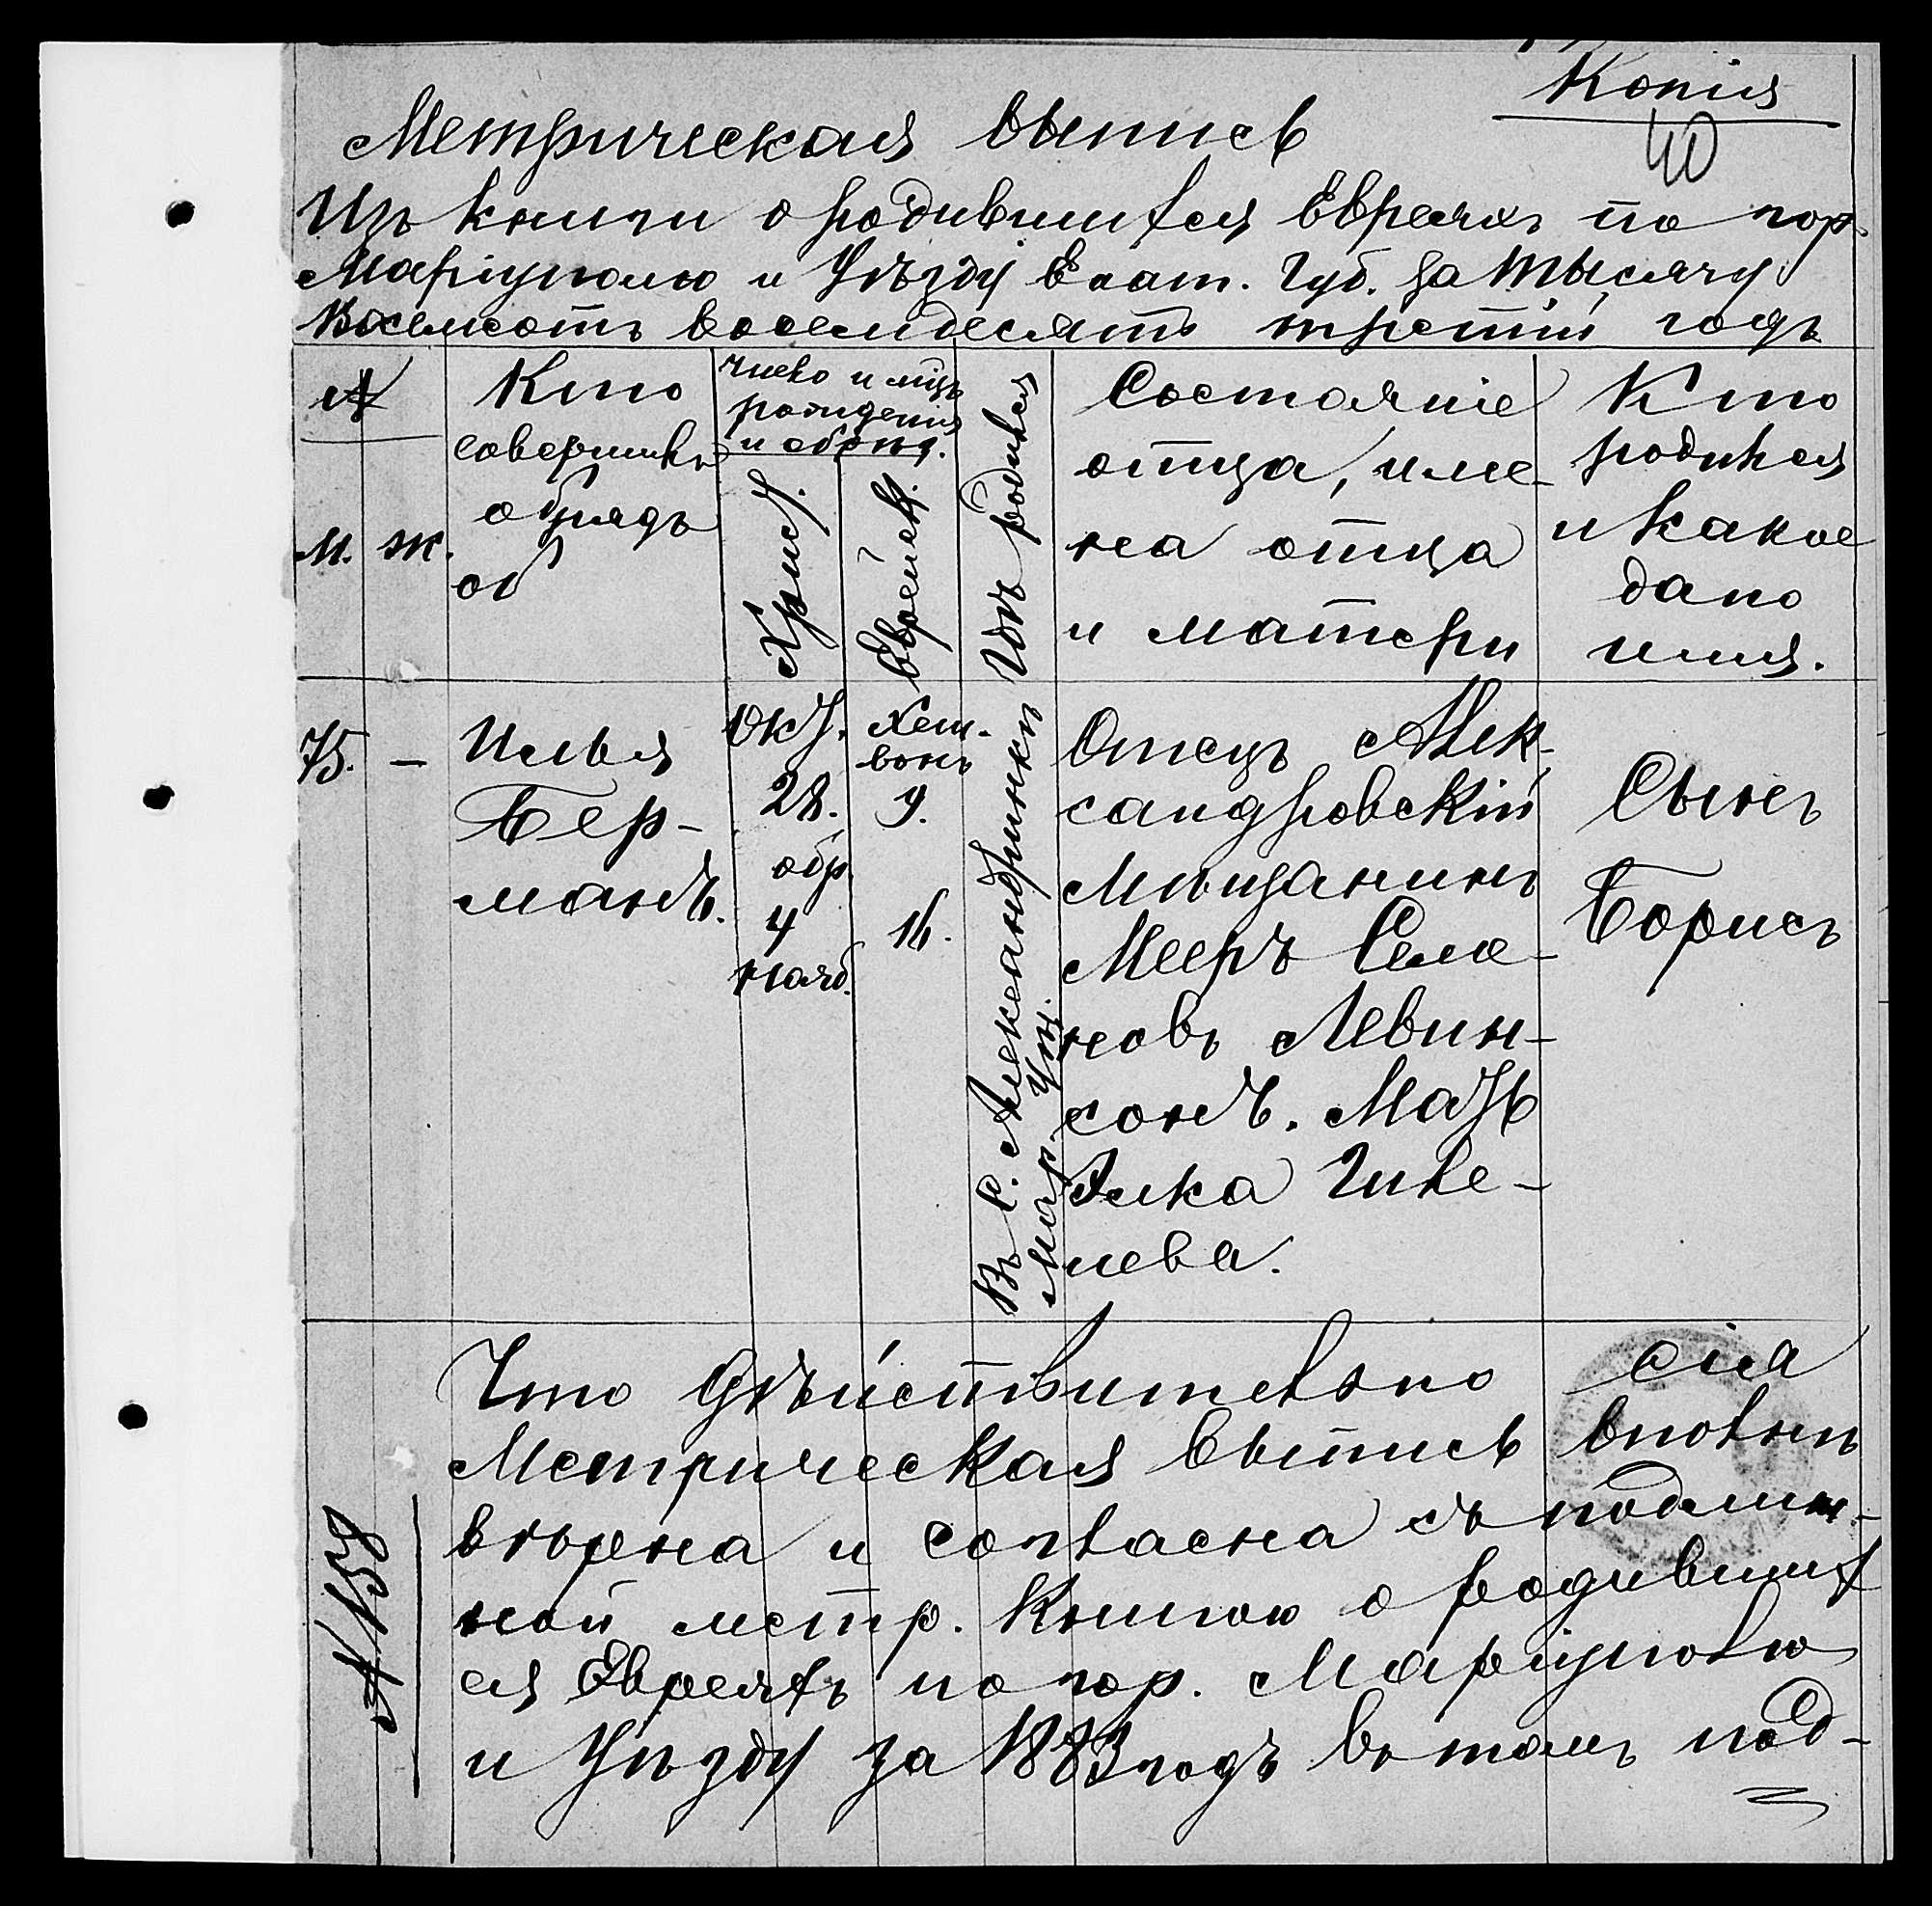 Копія
40
Метрическая выпись
Изъ книги о родившихся Евреяхъ по гор.
Маріуполю и Уѣзду Екат. Губ. за тысячу
Восемьсотъ восемдесятъ третій годъ
№
м. ж.
Кто
совершилъ
обрядъ
об
Число и мѣц.
рожденія
и обрѣз.
Христ.
Еврейск.
Гдѣ родился
Состояніе
отца, име-
на отца
и матери
Кто
родился
и какое
дано
имя.
75. —
Илья
Бер-
манъ.
Окт.
28.
обр.
4
Нояб.
Хеш-
вонъ
9.
16.
Въ с. Александринкѣ
Мар. Уѣз.
Отецъ Алек-
сандровскій
Мѣщанинъ
Мееръ Семе-
новъ Левин-
сонъ. Мать
Элка Гиле-
лева.
Сынъ
Борисъ
Что дѣйствительно сія
Метрическая выпись вполнѣ
вѣрна и согласна съ подлин-
ной метр. Книгою о родивших
ся Евреяхъ по гор. Маріуполю
и Уѣзду за 1883 годъ въ томъ под-
№ 1538